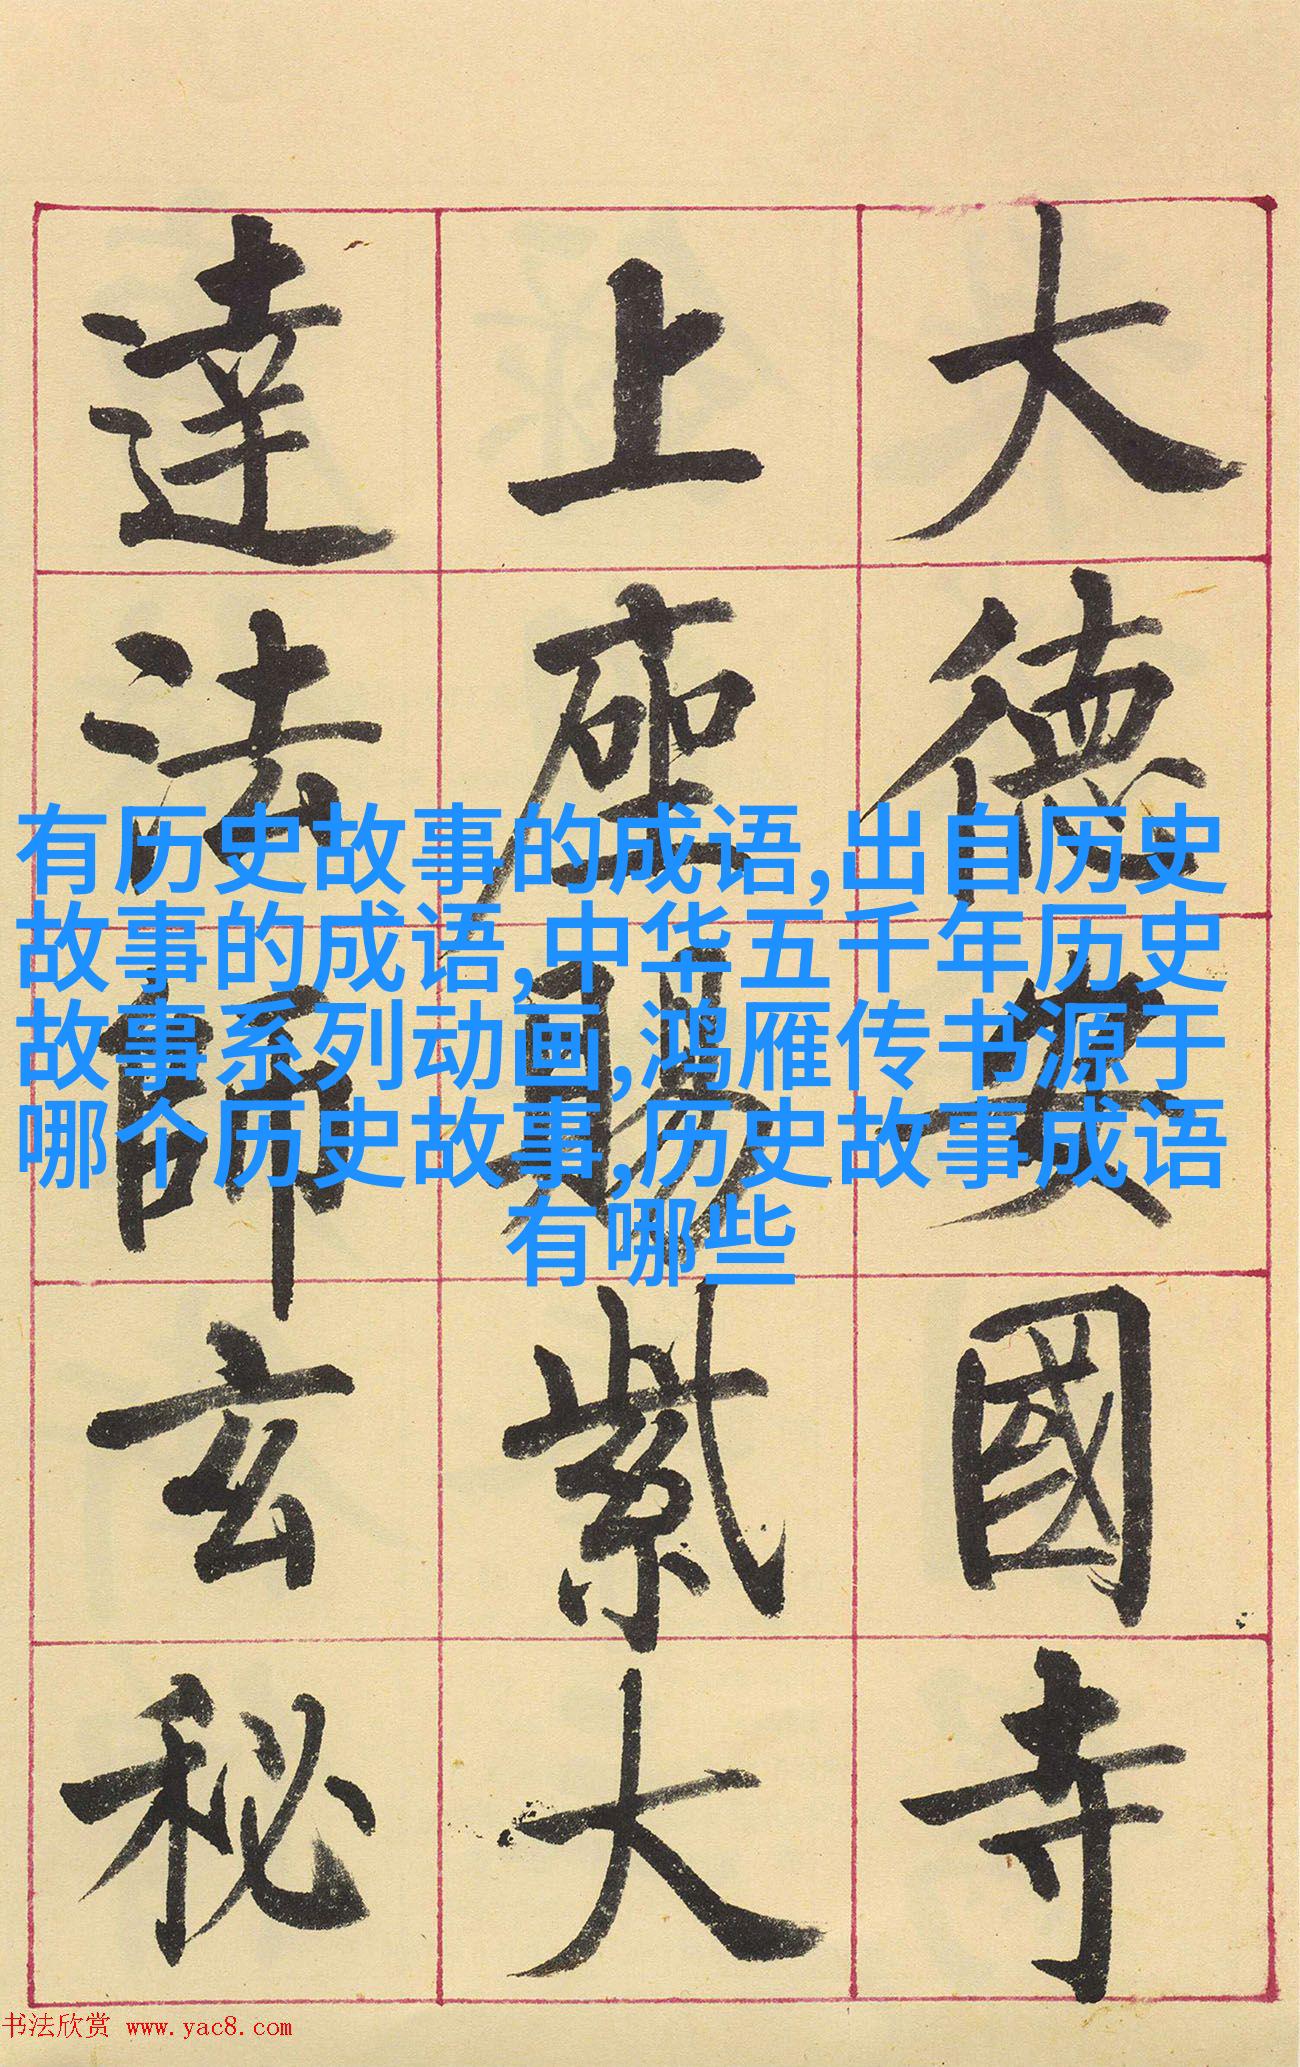 大德安國寺
上座賜紫大
達法師玄秘
有历史故事的成语,出自历史
故事的成语,中华五千年历史
故事系列动画,鸿雁传书源于
哪个历史故事,历史故事成语
有哪些
书法欣赏 www.yac8.com